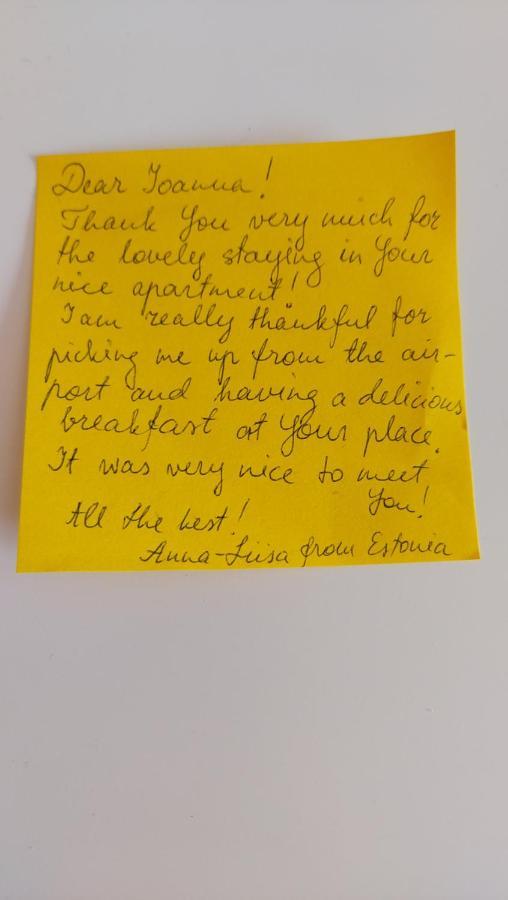 Dear Ioanna!
Thank You very much for
the lovely staying in Your
nice apartment!
I am really thankful for
picking me up from the air-
port and having a delicious
breakfast at Your place.
It was very nice to meet
You!
All the best!
Anna-Liisa from Estonia